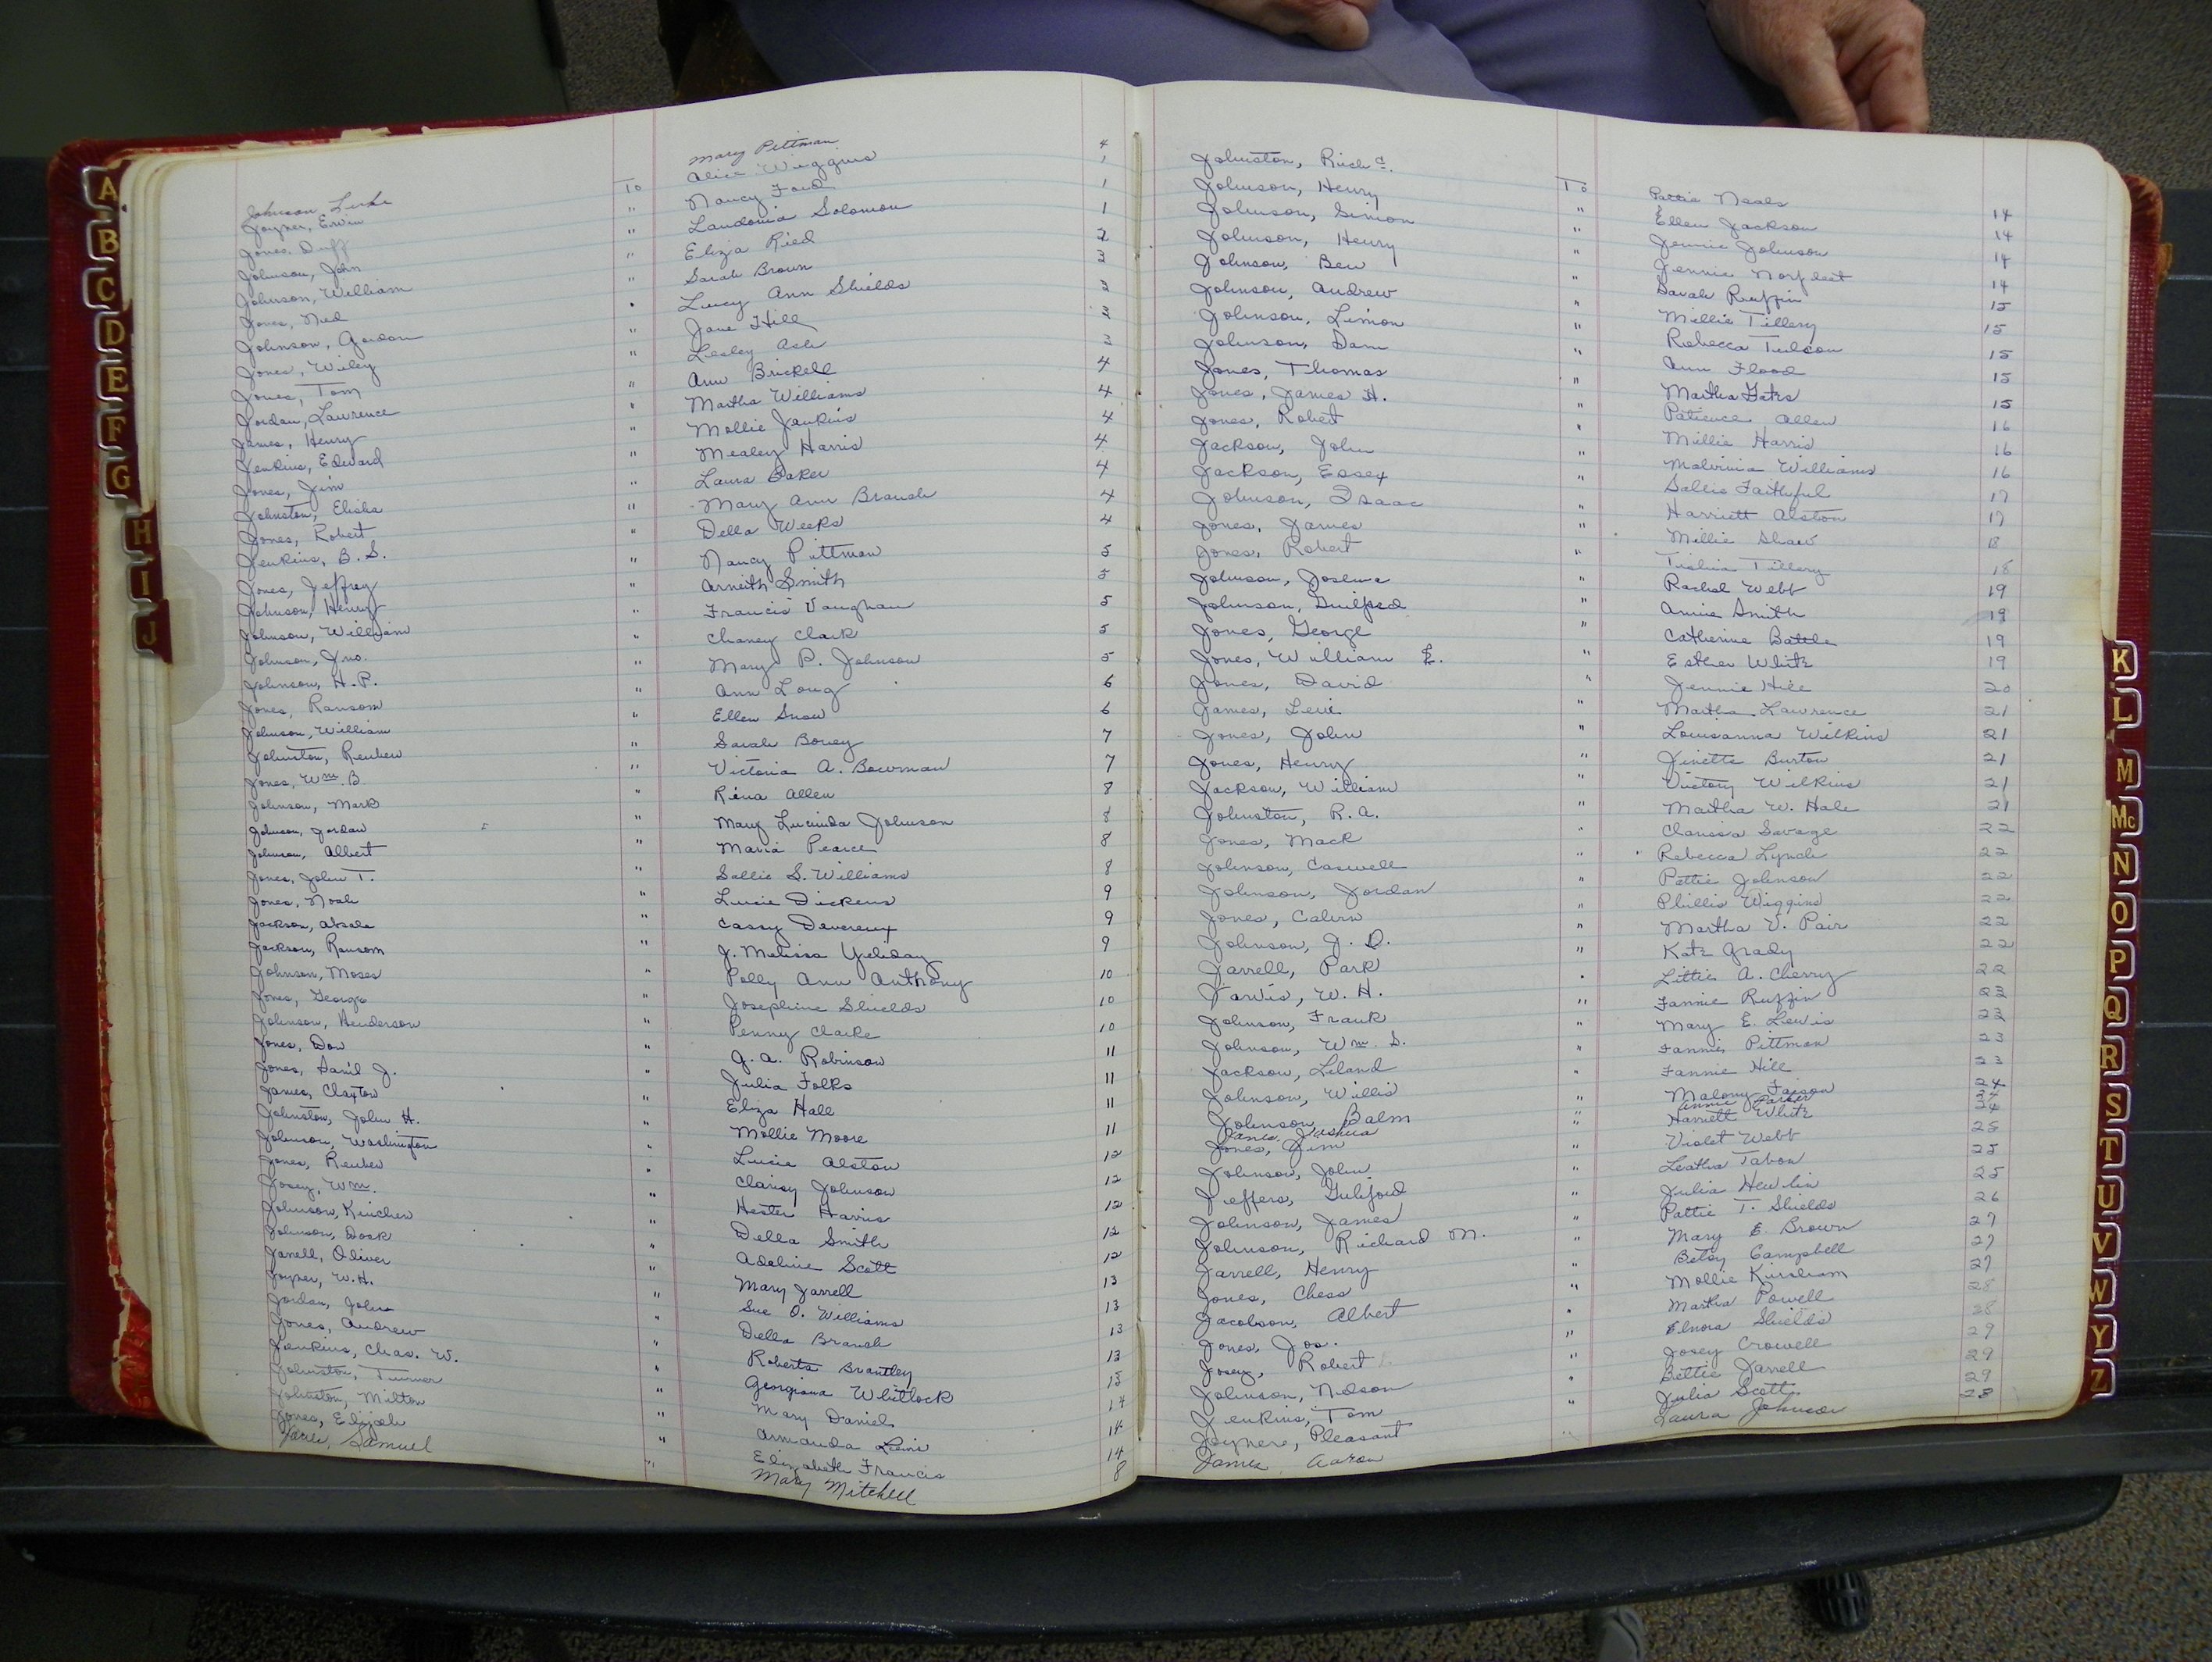 Johnson Luke Mary Pittman 4
Joyner, Erwin To Alice Wiggins 1
Jones, Duff " Nancy Ford 1
Johnson, John " Landonia Solomon 1
Johnson, William " Eliza Ried 2
Jones, Ned " Sarah Brown 3
Johnson, Gordon " Lucy Ann Shields 3
Jones, Wiley " Jane Hill 3
Jones, Tom " Lesley Ash 3
Jordan, Lawrence " Ann Brickell 4
James, Henry " Martha Williams 4
Jenkins, Edward " Mollie Jenkins 4
Jones, Jim " Mealey Harris 4
Johnston, Elisha " Laura Baker 4
Jones, Robert " Mary Ann Branch 4
Jenkins, B.S. " Della Weeks 4
Jones, Jeffrey " Nancy Pittman 5
Johnson, Henry " Arneith Smith 5
Johnson, William " Francis Vaughan 5
Johnson, Jno. " Chaney Clark 5
Johnson, H.P. " Mary P. Johnson 5
Jones, Ransom " Ann Long 6
Johnson, William " Ellen Snow 6
Johnston, Reuben " Sarah Boney 7
Jones, Wm. B. " Victoria A. Bowman 7
Johnson, Mark " Rina Allen 8
Johnson, Jordan " Mary Lucinda Johnson 8
Johnson, Albert " Maria Pearce 8
Jones, John T. " Sallie S. Williams 8
Jones, Noah " Lucie Dickens 9
Jackson, Absala " Cassy Devereux 9
Jackson, Ransom " J. Melissa Yeliday 9
Johnson, Moses " Polly Ann Anthony 10
Jones, George " Josephine Shields 10
Johnson, Henderson " Penny Clarke 10
Jones, Dow " G. A. Robinson 11
Jones, Danil J. " Julia Folks 11
James, Claxton " Eliza Hall 11
Johnston, John H. " Mollie Moore 11
Johnson, Washington " Lucie Alston 12
Jones, Reuben " Clancy Johnson 12
Josey, Wm. " Hester Harris 12
Johnson, Kinchen " Della Smith 12
Johnson, Dock " Adeline Scott 12
Jarrell, Oliver " Mary Jarrell 13
Joyner, W.H. " Sue O. Williams 13
Jordan, John " Della Branch 13
Jones, Andrew " Roberta Brantley 13
Jenkins, Chas. W. " Georgiana Whitlock 13
Johnston, Turner " Mary Daniel 14
Johnston, Milton " Armanda Lewis 14
Jones, Elijah " Elizabeth Francis 14
Samuel " Mary Mitchell 8
Johnston, Richd. To Pattie Neals 14
Johnson, Henry " Ellen Jackson 14
Johnson, Simon " Jennie Johnson 14
Johnson, Henry " Jennie Norfleet 14
Johnson, Ben " Sarah Ruffin 15
Johnson, Andrew " Millie Tillery 15
Johnson, Limon " Rebecca 15
Johnson, Dam " Ann Flood 15
Jones, Thomas " Martha Gates 15
Jones, James H. " Patience Allen 16
Jones, Robert " Millie Harris 16
Jackson, John " Malvinia Williams 16
Jackson, Essex " Sallie Faithful 17
Johnson, Isaac " Harriett Alston 17
Jones, James " Millie Shaw 18
Jones, Robert " Tishia Tillery 18
Johnson, Joshua " Rachel Webb 19
Johnson, Guilford " Annie Smith 19
Jones, George " Catherine Battle 19
Jones, William E. " Esther White 19
Jones, David " Jennie Hill 20
James, Levi " Martha Lawrence 21
Jones, John " Louisanna Wilkins 21
Jones, Henry " Jinette Burton 21
Jackson, William " Victory Wilkins 21
Johnston, R.A. " Martha W. Hale 21
Jones, Mack " Clarissa Savage 22
Johnson, Caswell " Rebecca Lynch 22
Johnson, Jordan " Pattie Johnson 22
Jones, Calvin " Phillis Wiggins 22
Johnson, J. D. " Martha V. Pair 22
Jarrell, Park " Kate Grady 22
Jarvis, W. H. " Littie A. Cherry 22
Johnson, Frank " Fannie Ruffin 23
Johnson, Wm. S. " Mary E. Lewis 23
Jackson, Leland " Fannie Pittman 23
Johnson, Willis " Fannie Hill 23
Johnson, Balm " Malony Faison 24
Jones, Joshua Parker 24
Jones, Jim " Harriett White 25
Johnson, John " Violet Webb 25
Jeffers, Guilford " Leatha Tabon 25
Johnson, James " Julia Hewlin 26
Johnson, Richard M. " Pattie T. Shields 27
Jarrell, Henry " Mary E. Brown 27
Jones, Chess " Betsy Campbell 27
Jacobson, Albert " Mollie Kirsham 28
Jones, Jos. " Martha Powell 28
Josey, Robert " Elnora Shields 29
Johnson, Nelson " Josey Crowell 29
Jenkins, Tom " Bettie Jarrell 29
Joyner, Pleasant " Julia Scott 28
James Aaron " Laura Johnson
A
B
C
D
E
F
G
H
I
J
K
L
M
Mc
N
O
P
Q
R
S
T
U
V
W
Y
Z